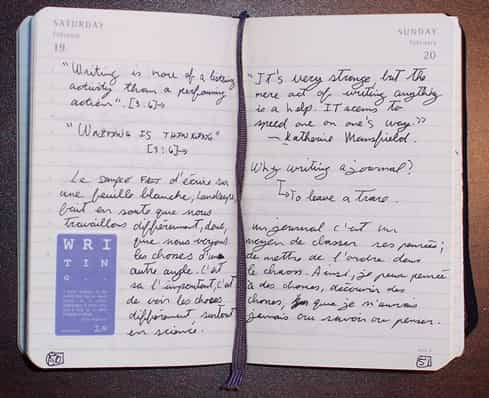 SATURDAY
February
19
"Writing is more of a listening
activity than a performing
action". [3:6]→
"WRITING IS THINKING"
[3:6]→
Le SIMPLE FAIT d'écrire sur
une feuille blanche,
fait en sorte que nous
travaillons différemment, donc,
que nous voyons
les choses d'un
autre angle. C'est
ça l'important, c'est
de voir les choses
différemment surtout
en science.
WRI
TIN
G
50
SUNDAY
February
20
"It's very strange, but the
mere act of writing anything
is a help. It seems to
speed one on one's way."
— Katherine Mansfield.
Why writing a journal?
→ To leave a trace.
un journal c'est un
moyen de classer ses pensées;
de mettre de l'ordre dans
le chaos. Ainsi, je peux penser
à des choses, découvrir des
choses, que je n'aurais
jamais cru savoir ou penser.
51